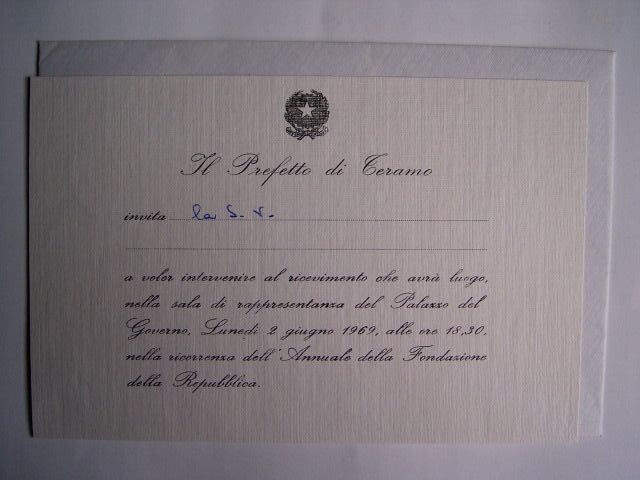 Il Prefetto di Teramo
invita la S. V.
a voler intervenire al ricevimento che avrà luogo,
nella sala di rappresentanza del Palazzo del
Governo, Lunedì 2 giugno 1969, alle ore 18,30,
nella ricorrenza dell'Annuale della Fondazione
della Repubblica.